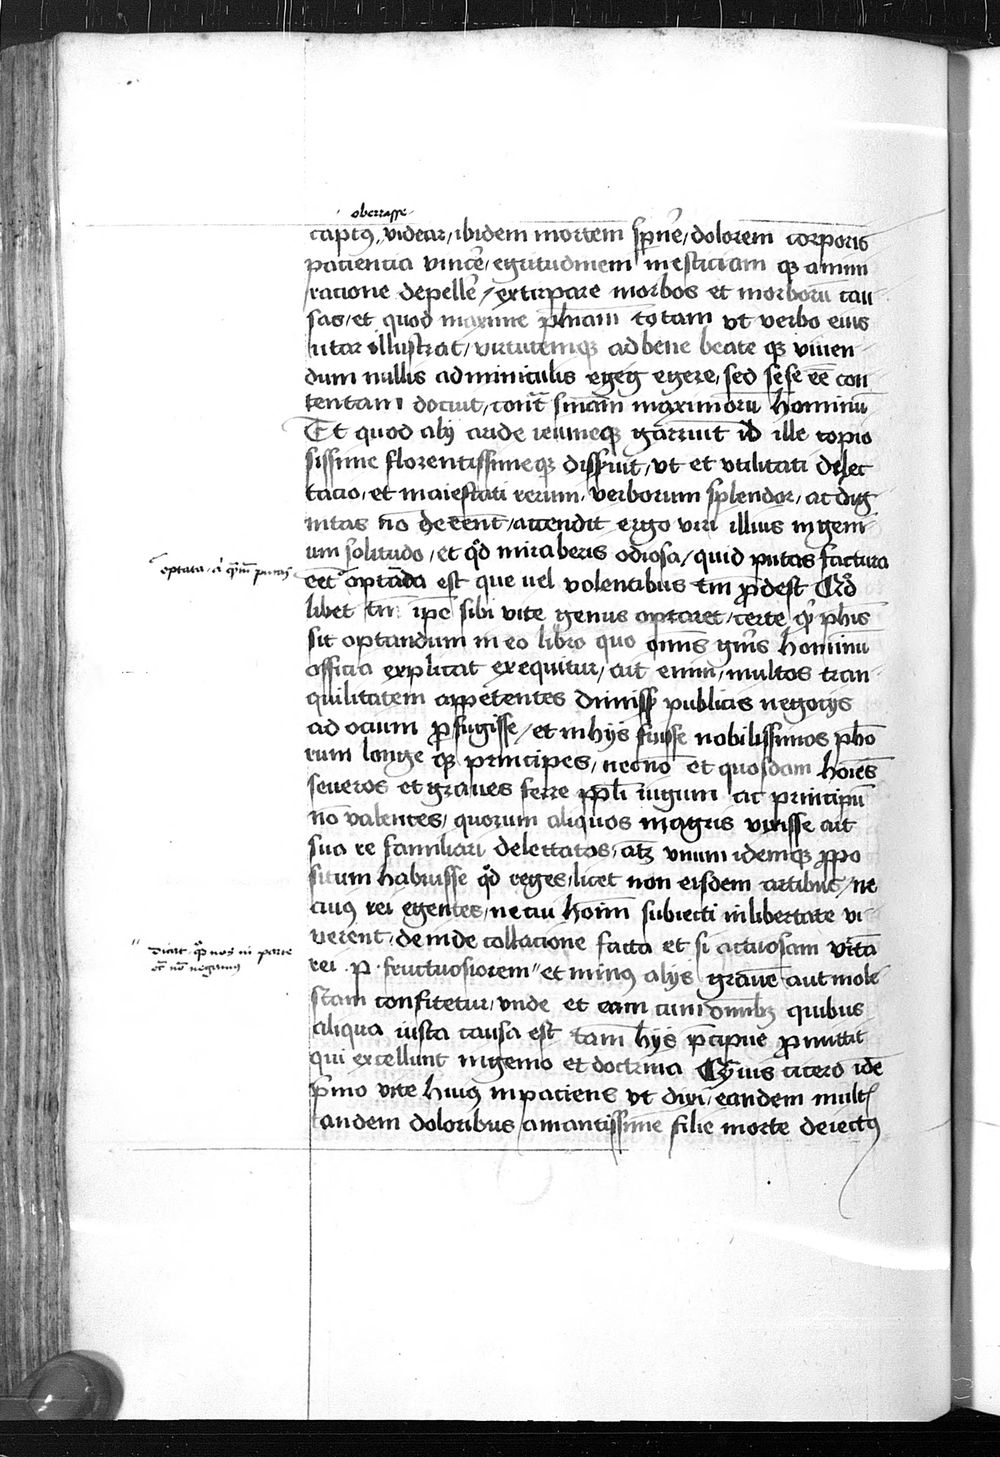 oberrasse
captus, videar, ibidem mortem spnē, dolorem corporis
paciencia vincē, egritudinem mesticiam qꝫ animi
racione depellē, extirpare morbos et morborū cau
sas, et quod maxime phīam totam vt verbo eius
utar illustrat, virtutemqꝫ ad bene beate qꝫ viuen
dum nullis adminiculis egere, sed sese eē con
tentam docuit, contᵃ sniam maximorū hominū
Et quod alij aride ieiuneqꝫ garriūt id ille copio
sissime florentissimeqꝫ disseruit, vt et vtilitati delec
tacio, et maiestati rerum, verborum splendor, ac dig
nitas nō deeēnt, attendit ergo viri illius ingeni
um solitudo, et qd miraberis odiosa, quid putas factura
optata, a qm putas
eēt optāda est que uel volentibus tm ꝓdest Qd
libet tn ipe sibi vite genus optaret, certe qͥ phis
sit optandum in eo libro quo omīs gnis hominū
officia explicat exequitur, ait enim, multos tran
quilitatem appetentes dimissis publicis negocijs
ad ocium ꝓfugisse, et in hijs fuisse nobilissimos pho
rum longe qꝫ principes, necnō et quosdam hoīes
seueros et graues ferre ppli iugum ac principū
nō valentes, quorum aliquos in agris vixisse ait
sua re familiari delectatos, atqꝫ vnum idemqꝫ ꝓpo
situm habuisse qd reges, licet non eisdem artibus, ne
cuius rei egentes, ne cui hoīm subiecti in libertate vi
verent, deinde collacione facta et si actuosam vitā
dicat qͥ nos in parte
etᷤ nō negamus
rei .p. fructuosiorem et minus alijs grauē aut mole
stam confitetur, vnde et eam cum omībꝫ quibus
aliqua iusta causa est tam hijs pcipue ꝓmittit
qui excellunt ingenio et doctrina Cuius cicero idē
pmo vite huius inpaciens vt dixi, eandem mult
tandem doloribus amantissime filie morte deiectus